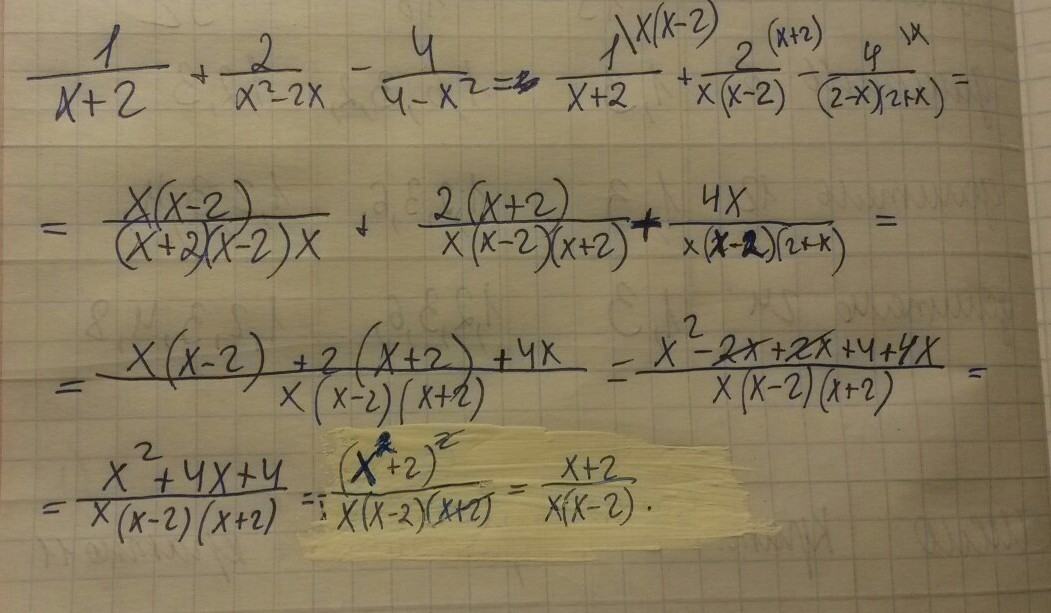 1/(x+2) + 2/(x²-2x) - 4/(4-x²) = 1\x(x-2)/(x+2) + 2(x+2)/(x(x-2)) - 4\x/((2-x)(2+x)) =
= x(x-2)/((x+2)(x-2)x) + 2(x+2)/(x(x-2)(x+2)) + 4x/(x(x-2)(2+x)) =
= (x(x-2)+2(x+2)+4x)/(x(x-2)(x+2)) = (x²-2x+2x+4+4x)/(x(x-2)(x+2)) =
= (x²+4x+4)/(x(x-2)(x+2)) = (x+2)²/(x(x-2)(x+2)) = (x+2)/(x(x-2)).